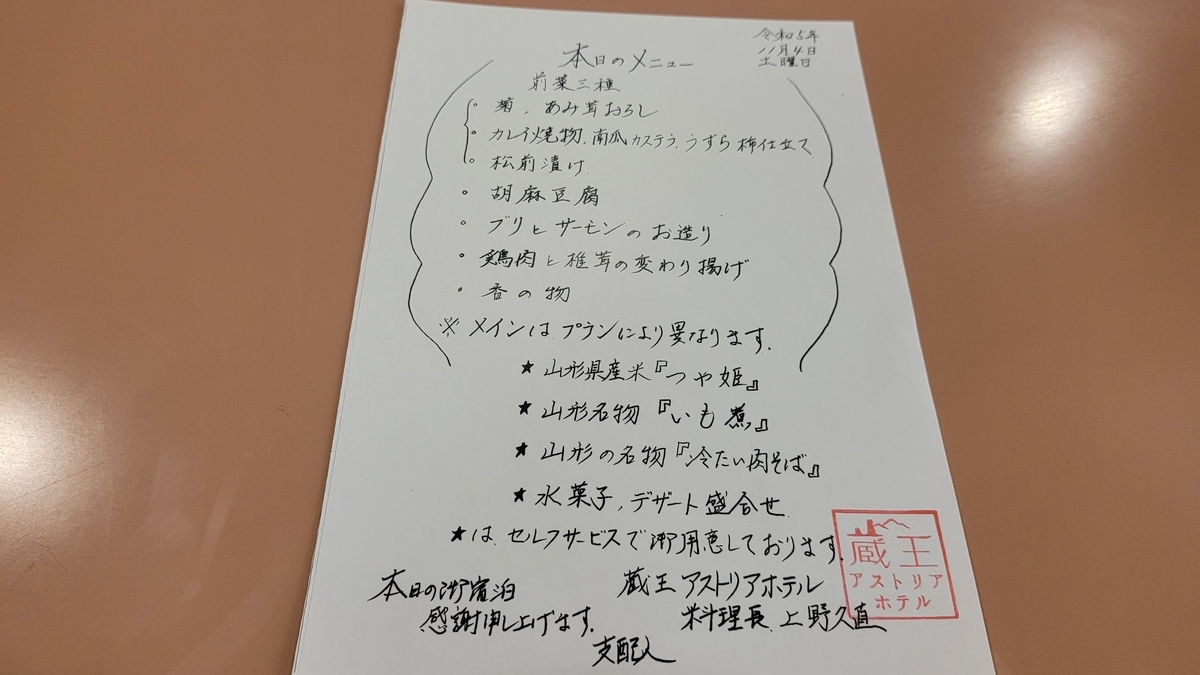 令和5年
11月4日
土曜日
本日のメニュー
前菜三種
。菊、あみ茸おろし
。カレイ焼物、南瓜カステラ、うずら柿仕立て
。松前漬け
。胡麻豆腐
。ブリとサーモンのお造り
。鶏肉と椎茸の変わり揚げ
。香の物
※メインはプランにより異なります。
★山形県産米『つや姫』
★山形名物『いも煮』
★山形の名物『冷たい肉そば』
★水菓子、デザート盛合せ
★は、セルフサービスで御用意しております。
本日の御宿泊
感謝申し上げます。
蔵王アストリアホテル
料理長 上野久直
支配人
蔵王
アストリア
ホテル